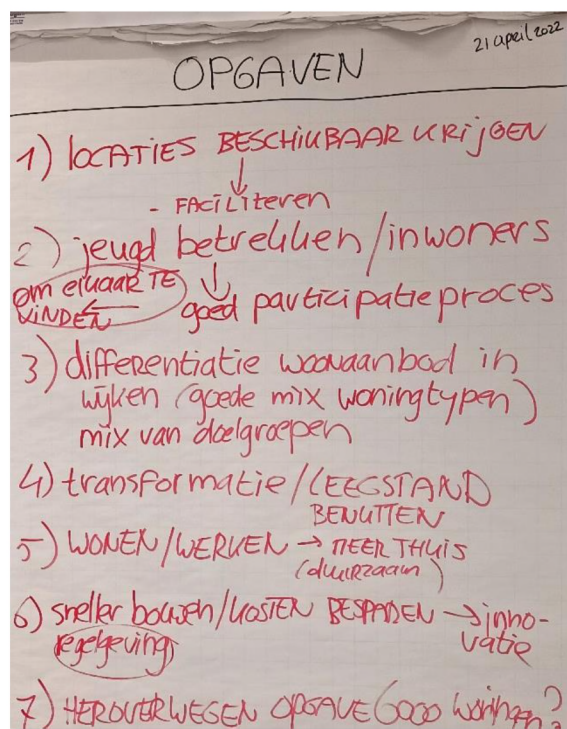 21 april 2022
OPGAVEN
1) locATIES BESCHIKBAAR KRIJGEN
- FACILITEREN
2) jeugd betrekken/inwoners
om elkaar TE
VINDEN
goed participatieproces
3) differentiatie woonaanbod in
wijken (goede mix woningtypen)
mix van doelgroepen
4) transformatie/LEEGSTAND
BENUTTEN
5) WONEN/WERKEN → MEER THUIS
(duurzaam)
6) sneller bouwen/KOSTEN BESPAREN → inno-
regelgeving
vatie
7) HEROVERWEGEN OPGAVE 6000 woningen?